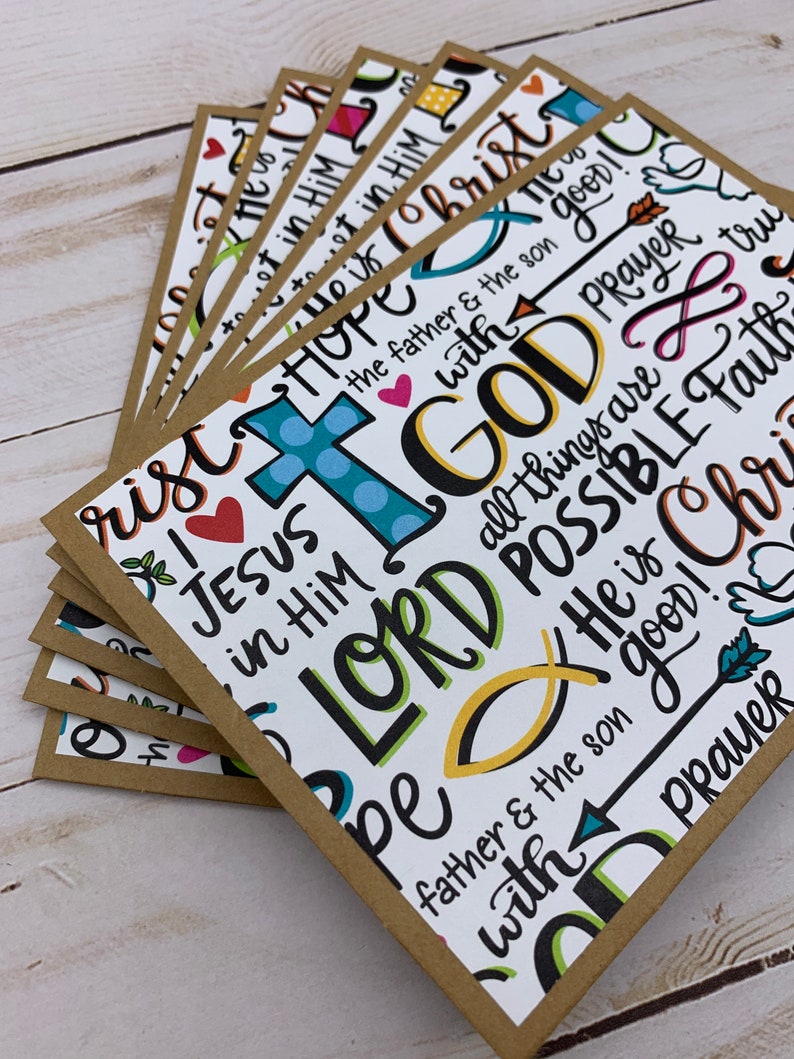 Christ
He is
in HiM
in HiM
He is
HOPE
Christ
He is
good!
the father & the son
with
GOD
PRAYER
all things are
POSSIBLE
Faith
rist
I
JESUS
in HiM
LORD
Christ
He is
good!
father & the son
with
PRAYER